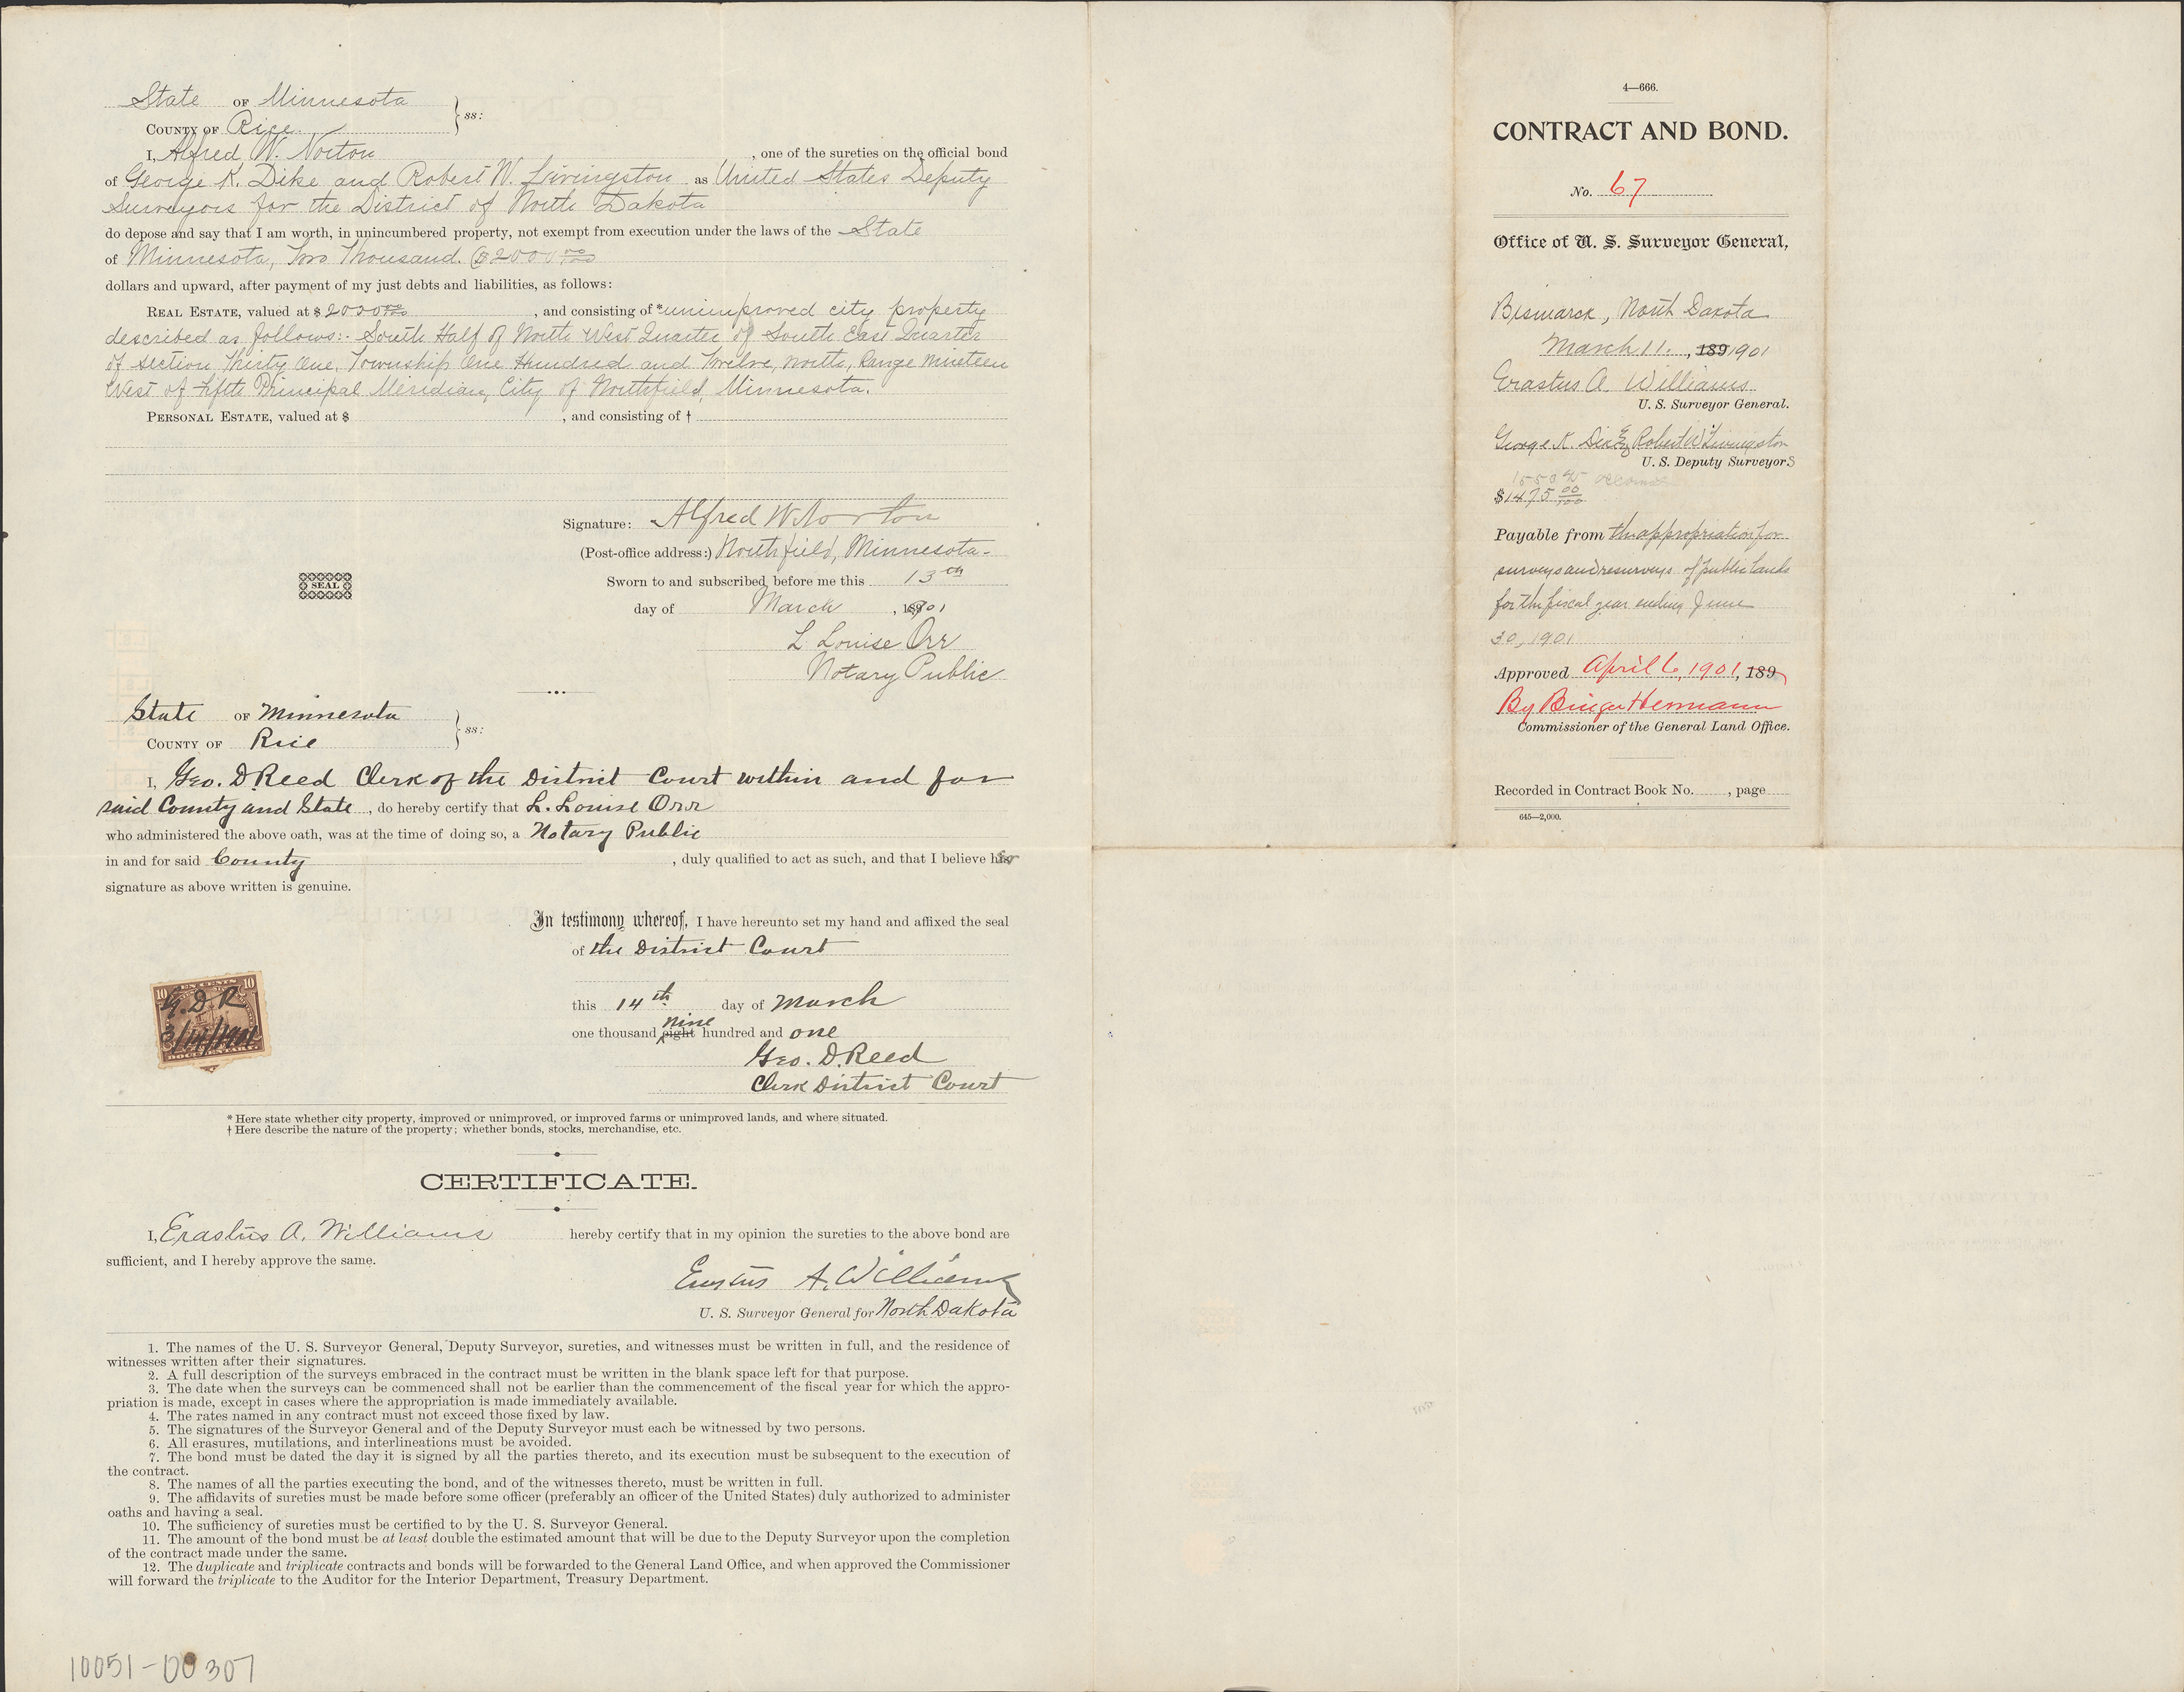 State OF Minnesota
COUNTY OF Rice } ss:
I, Alfred W. Norton, one of the sureties on the official bond
of George K. Dike and Robert W. Livingston as United States Deputy
Surveyors for the District of North Dakota
do depose and say that I am worth, in unincumbered property, not exempt from execution under the laws of the State
of Minnesota, Two Thousand. ($2000 00/100
dollars and upward, after payment of my just debts and liabilities, as follows:
REAL ESTATE, valued at $ 2000 00/100, and consisting of * unimproved city property
described as follows:- South Half of North West Quarter of South East Quarter
of Section Thirty One, Township One Hundred and Twelve, North, Range Nineteen
West of Fifth Principal Meridian, City of Northfield, Minnesota.
PERSONAL ESTATE, valued at $ , and consisting of †
Signature: Alfred W Norton
(Post-office address:) Northfield, Minnesota-
Sworn to and subscribed before me this 13th
SEAL
day of March, 1901
L. Louise Orr
Notary Public
State OF Minnesota
COUNTY OF Rice } ss:
I, Geo. D. Reed Clerk of the District Court within and for
said County and State, do hereby certify that L. Louise Orr
who administered the above oath, was at the time of doing so, a Notary Public
in and for said County, duly qualified to act as such, and that I believe her
signature as above written is genuine.
In testimony whereof, I have hereunto set my hand and affixed the seal
of the District Court
this 14th day of March
nine
one thousand eight hundred and one
Geo. D. Reed
Clerk District Court
10 TEN CENTS 10
G. D. R
3/14/1901
DOCUMENTARY
* Here state whether city property, improved or unimproved, or improved farms or unimproved lands, and where situated.
† Here describe the nature of the property; whether bonds, stocks, merchandise, etc.
CERTIFICATE.
I, Erastus A. Williams hereby certify that in my opinion the sureties to the above bond are
sufficient, and I hereby approve the same.
Erastus A. Williams
U. S. Surveyor General for North Dakota
1. The names of the U. S. Surveyor General, Deputy Surveyor, sureties, and witnesses must be written in full, and the residence of
witnesses written after their signatures.
2. A full description of the surveys embraced in the contract must be written in the blank space left for that purpose.
3. The date when the surveys can be commenced shall not be earlier than the commencement of the fiscal year for which the appro-
priation is made, except in cases where the appropriation is made immediately available.
4. The rates named in any contract must not exceed those fixed by law.
5. The signatures of the Surveyor General and of the Deputy Surveyor must each be witnessed by two persons.
6. All erasures, mutilations, and interlineations must be avoided.
7. The bond must be dated the day it is signed by all the parties thereto, and its execution must be subsequent to the execution of
the contract.
8. The names of all the parties executing the bond, and of the witnesses thereto, must be written in full.
9. The affidavits of sureties must be made before some officer (preferably an officer of the United States) duly authorized to administer
oaths and having a seal.
10. The sufficiency of sureties must be certified to by the U. S. Surveyor General.
11. The amount of the bond must be at least double the estimated amount that will be due to the Deputy Surveyor upon the completion
of the contract made under the same.
12. The duplicate and triplicate contracts and bonds will be forwarded to the General Land Office, and when approved the Commissioner
will forward the triplicate to the Auditor for the Interior Department, Treasury Department.
10051-00307
4—666.
CONTRACT AND BOND.
No. 67
Office of U. S. Surveyor General,
Bismarck, North Dakota
March 11., 189 1901
Erastus A. Williams
U. S. Surveyor General.
George K. Dike & Robert W Livingston
U. S. Deputy Surveyors
$1475 00/100
Payable from the appropriation for
surveys and resurveys of public lands
for the fiscal year ending June
30, 1901
Approved April 6, 1901, 189
By Binger Hermann
Commissioner of the General Land Office.
Recorded in Contract Book No. , page
645—2,000.